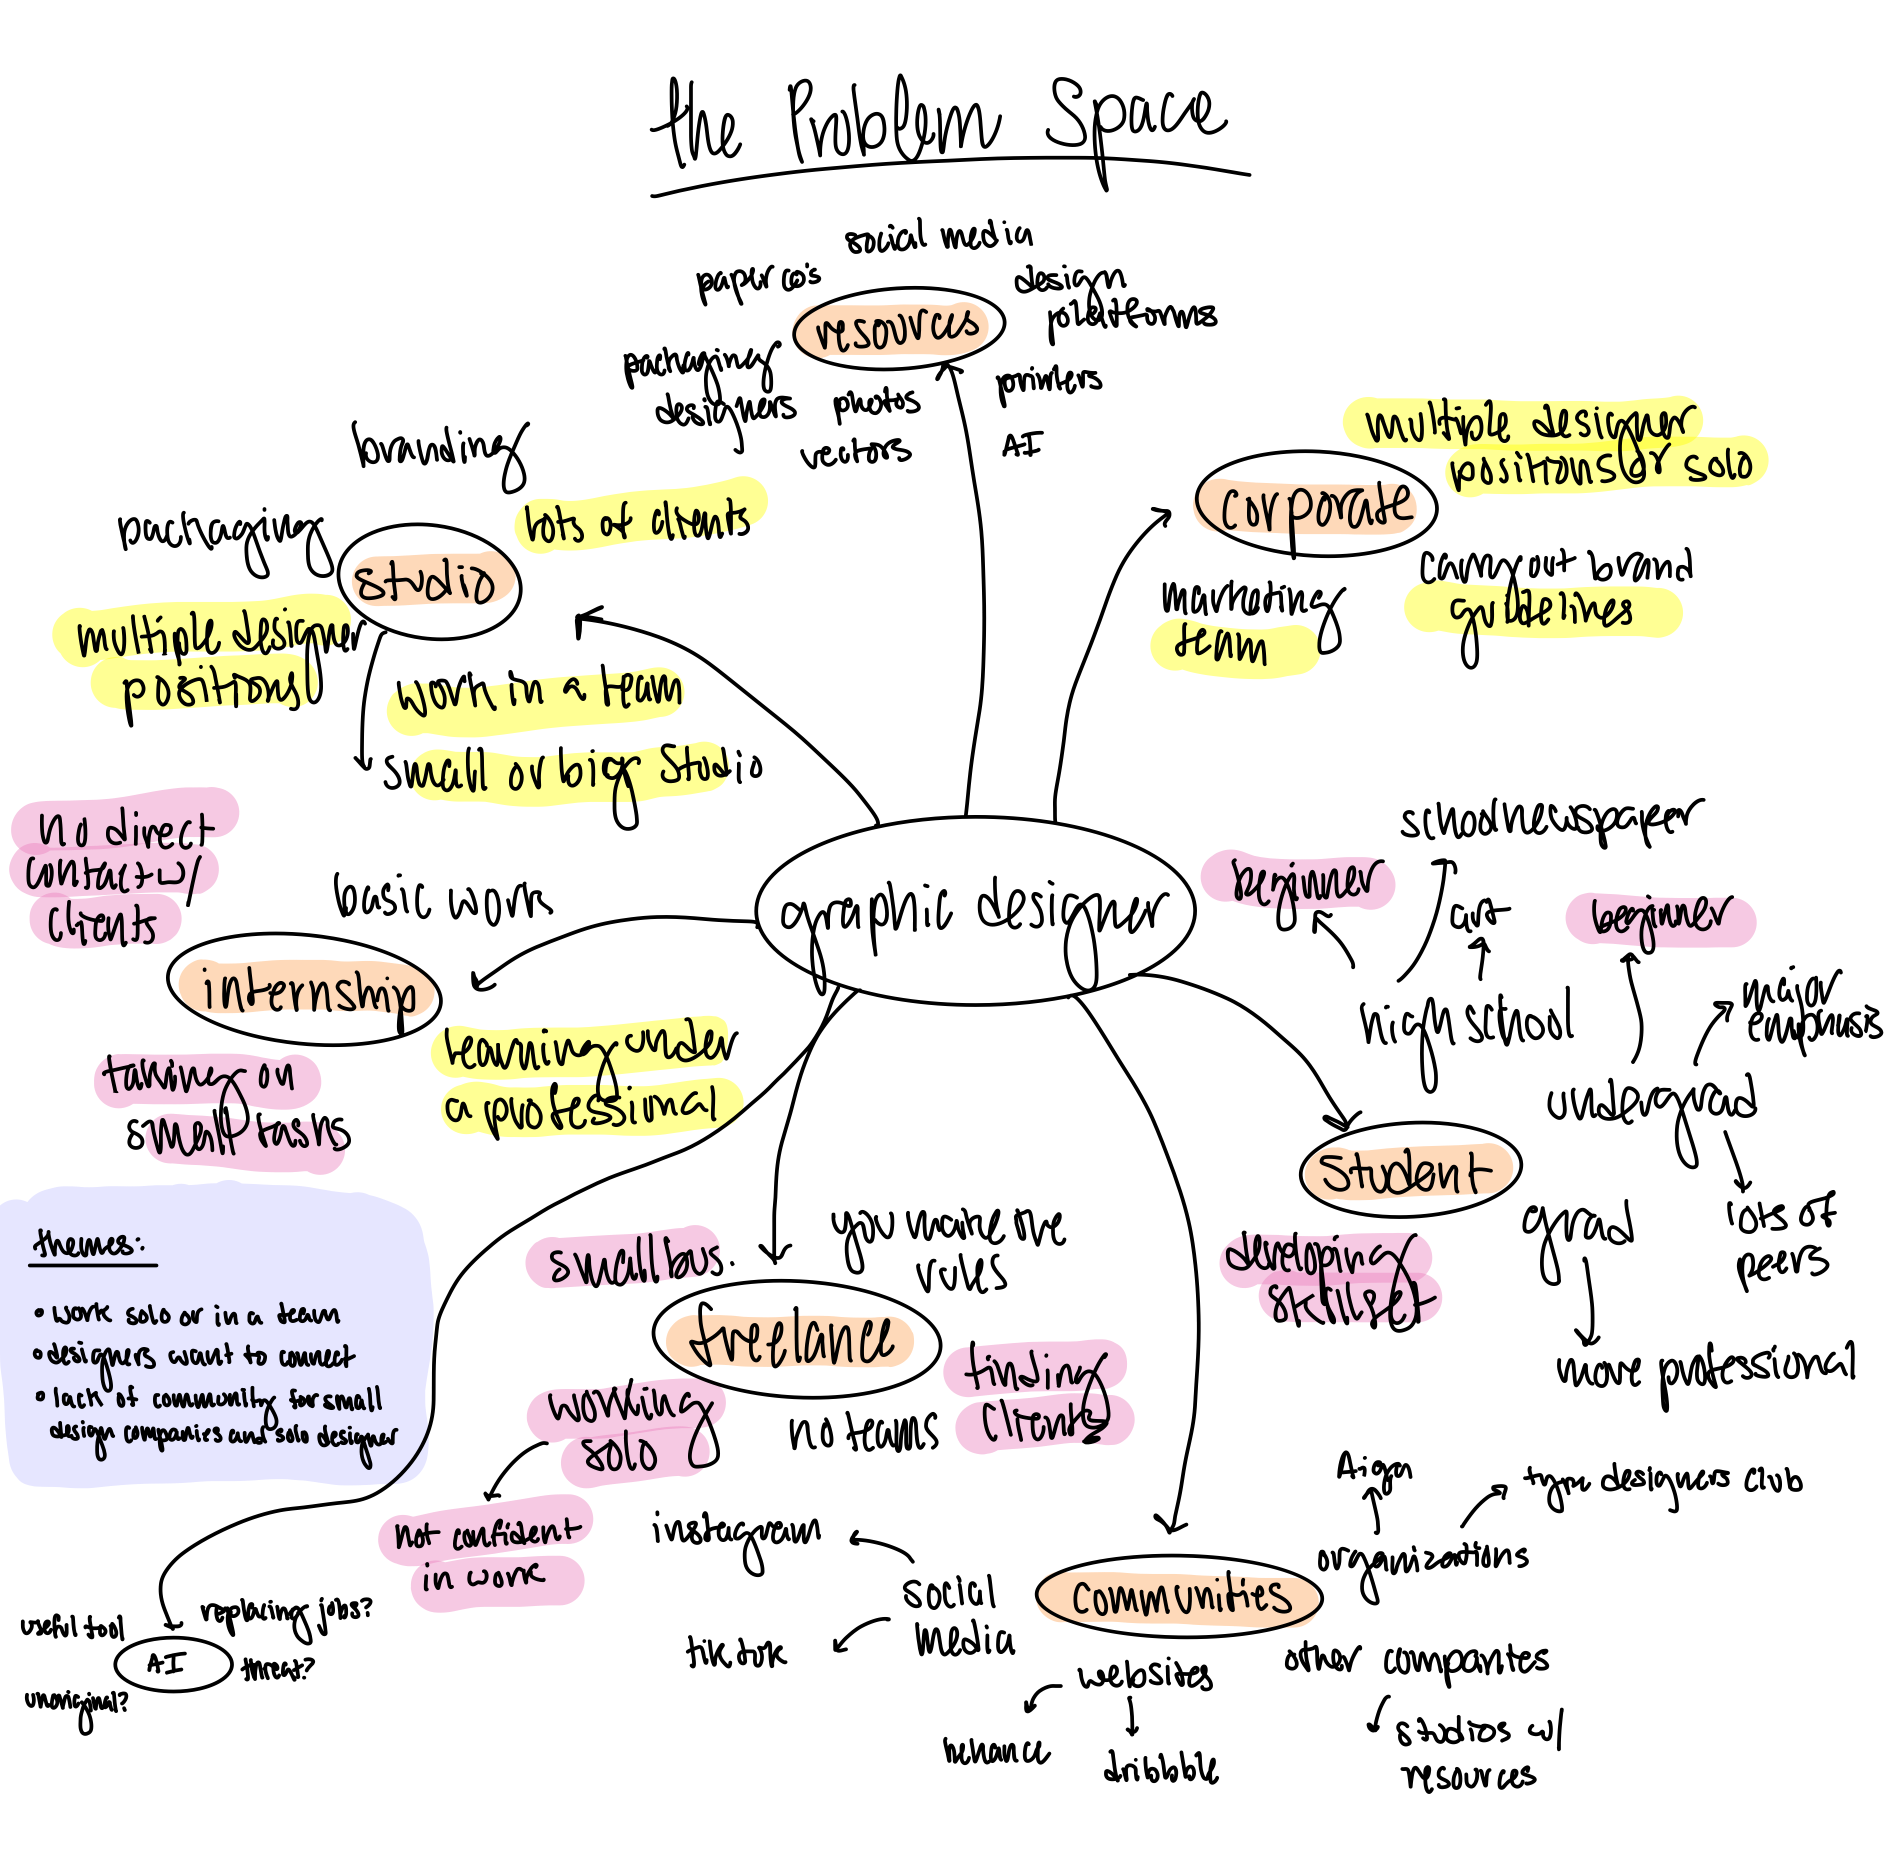 the Problem Space
social media
paper co's
design
platforms
resources
packaging
designers
photos
vectors
printers
AI
branding
packaging
lots of clients
studio
multiple designer
positions
work in a team
small or big studio
multiple designer
positions or solo
corporate
marketing
team
carry out brand
guidelines
no direct
contact w/
clients
basic work
internship
learning under
a professional
taking on
small tasks
graphic designer
beginner
school newspaper
art
high school
beginner
major
emphasis
undergrad
lots of
peers
student
grad
developing
skillset
more professional
themes:
• work solo or in a team
• designers want to connect
• lack of community for small
design companies and solo designer
small bus.
you make the
rules
freelance
working
solo
no teams
finding
clients
not confident
in work
useful tool
replacing jobs?
AI
threat?
unoriginal?
instagram
social
media
tik tok
communities
Aiga
type designers club
organizations
other companies
studios w/
resources
websites
behance
dribbble